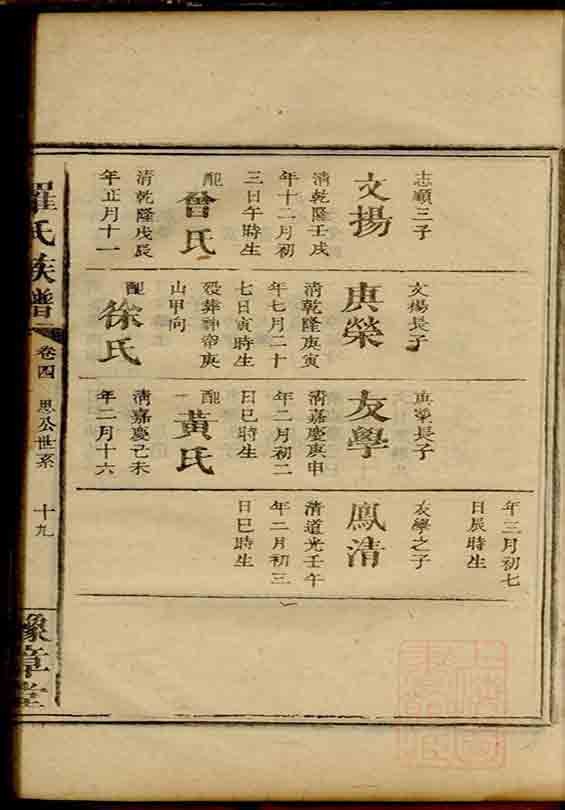 志顧三子
文揚
清乾隆壬戌
年十二月初
三日午時生
配
曾氏
清乾隆戊辰
年正月十一
文揚長子
庚榮
清乾隆庚寅
年七月二十
七日寅時生
歿葬神帝庚
山甲向
配
徐氏
庚榮長子
友學
清嘉慶庚申
年二月初二
日巳時生
配
黃氏
清嘉慶己未
年二月十六
年三月初七
日辰時生
友學之子
鳳清
清道光壬午
年二月初三
日巳時生
羅氏族譜
卷四
思公世系
十九
豫章堂